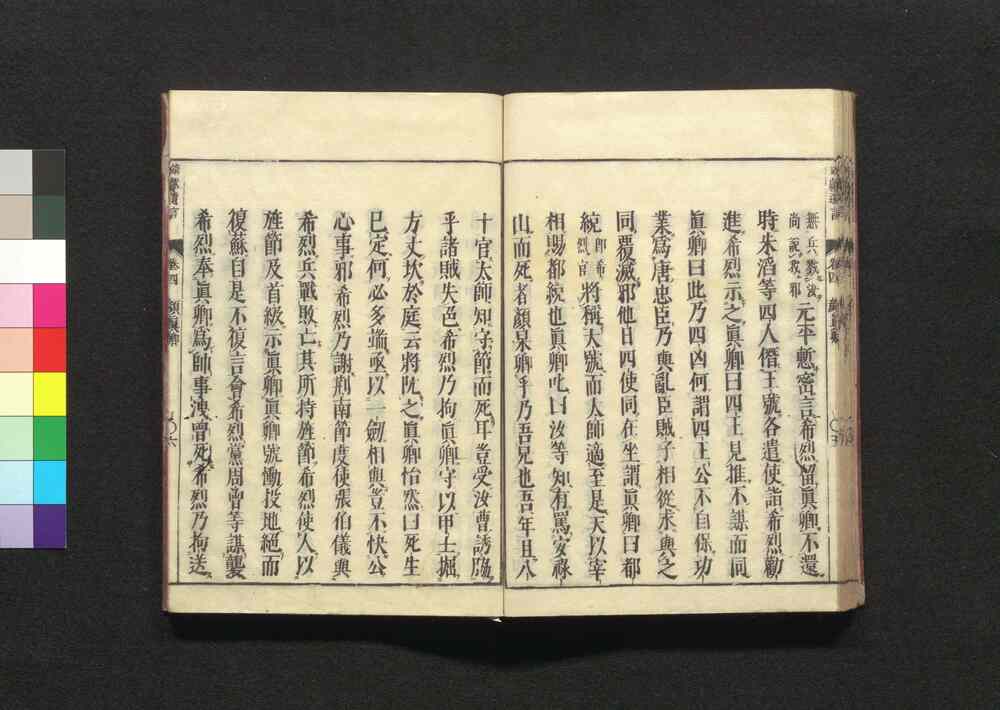 無兵戮汝
尚説我邪
元平慙密言希烈留眞卿不還
時朱滔等四人僭王號各遣使詣希烈勸
進希烈示之眞卿曰四王見推不謀而同
眞卿曰此乃四凶何謂四王公不自保功
業爲唐忠臣乃與亂臣賊子相從求與之
同覆滅邪他日四使同在坐謂眞卿曰都
統
即希
烈官
將稱大號而太師適至是天以宰
相賜都統也眞卿叱曰汝等知有罵安祿
山而死者顏杲卿乎乃吾兄也吾年且八
十官太師知守節而死耳豈受汝曹誘脇
乎諸賊失色希烈乃拘眞卿守以甲士掘
方丈坎於庭云將阬之眞卿怡然曰死生
已定何必多端亟以一劍相與豈不快公
心事邪希烈乃謝荆南節度使張伯儀與
希烈兵戰敗亡其所持旌節希烈使人以
旌節及首級示眞卿眞卿號慟投地絕而
復蘇自是不復言會希烈黨周曾等謀襲
希烈奉眞卿爲帥事洩曾死希烈乃拘送
卷四
顏眞卿
〇六